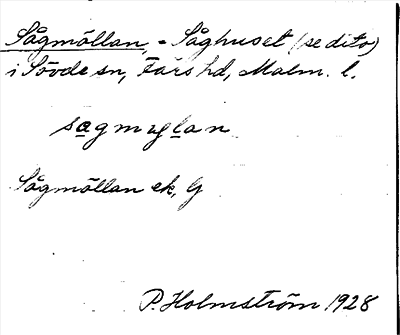 Sågmöllan, = Såghuset (se dito)
i Sövde sn, Färs hd, Malm. l.
Sågmöllan ek, G
P. Holmström 1928